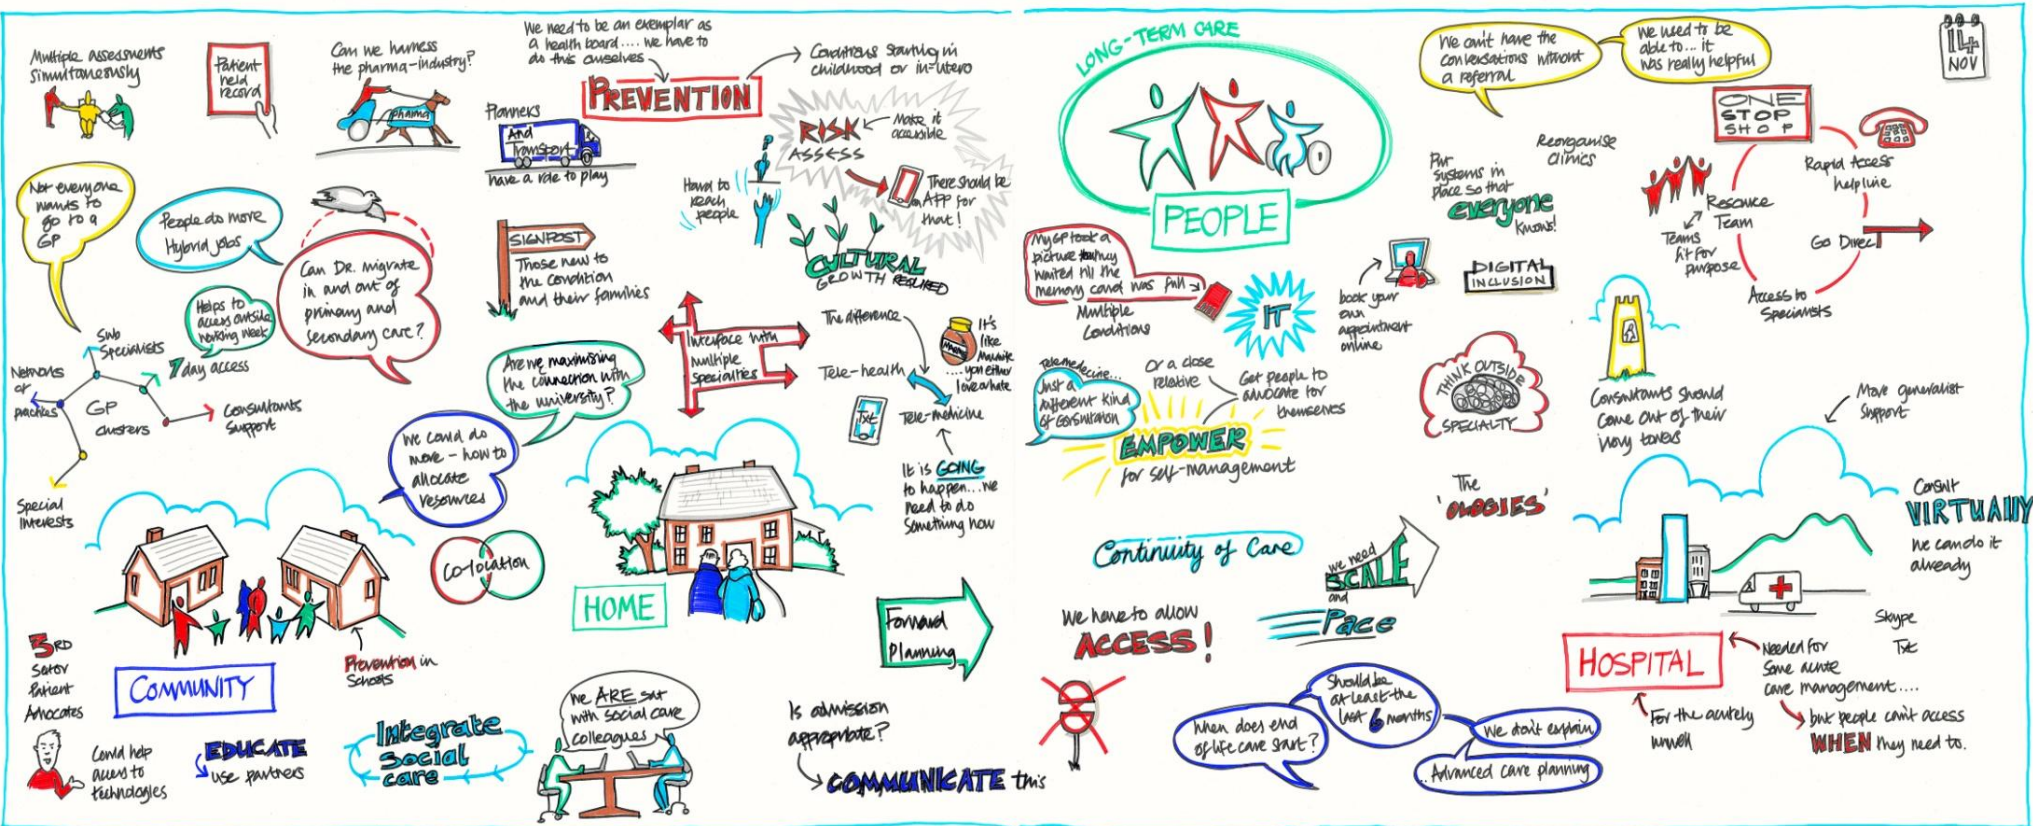 Multiple Assessments
Simultaneously
Patient
held
record
Can we harness
the pharma-industry?
pharma
We need to be an exemplar as
a health board.... we have to
do this ourselves
PREVENTION
Conditions starting in
childhood or in-utero
Planners
And
Transport
have a role to play
RISK
ASSESS
Make it
accessible
There should be
an APP for
that!
Hard to
reach
people
CULTURAL
GROWTH REQUIRED
Not everyone
wants to
go to a
GP
People do more
Hybrid jobs
Can DR. migrate
in and out of
primary and
secondary care?
Helps to
access outside
working week
7 day access
SIGNPOST
Those new to
the condition
and their families
Sub
Specialists
Networks
of
practices
GP
clusters
Consultants
Support
Special
Interests
Are we maximising
the connection with
the university?
We could do
more - how to
allocate
resources
Interface with
multiple
specialties
The difference
Tele-health
Tele-medicine
Txt
It's
like
Marmite
...you either
love or hate
It is GOING
to happen...we
need to do
something now
Co-location
HOME
Forward
Planning
3RD
Sector
Patient
Advocates
COMMUNITY
Prevention in
Schools
Could help
access to
technologies
EDUCATE
use partners
Integrate
Social
care
We ARE sat
with social care
colleagues
Is admission
appropriate?
COMMUNICATE this
LONG-TERM CARE
PEOPLE
We can't have the
conversations without
a referral
We need to be
able to... it
was really helpful
14
NOV
ONE
STOP
SHOP
Reorganise
Clinics
Put
systems in
place so that
everyone
knows!
Rapid Access
helpline
Resource
Team
Teams
fit for
purpose
Go Direct
Access to
Specialists
My GP took a
picture they
waited till the
memory card was full
Multiple
Conditions
IT
book your
own
appointment
online
DIGITAL
INCLUSION
Telemedicine...
Just a
different kind
of consultation
Or a close
relative
Get people to
advocate for
themselves
EMPOWER
for self-management
THINK OUTSIDE
SPECIALTY
Consultants should
come out of their
ivory towers
More generalist
support
The
'OLOGIES'
Continuity of Care
We need
SCALE
and
Pace
Consult
VIRTUALLY
We can do it
already
Skype
Txt
We have to allow
ACCESS!
HOSPITAL
Needed for
some acute
care management....
but people can't access
WHEN they need to.
For the acutely
unwell
When does end
of life care start?
Should be
at least the
last 6 months
We don't explain
Advanced care planning